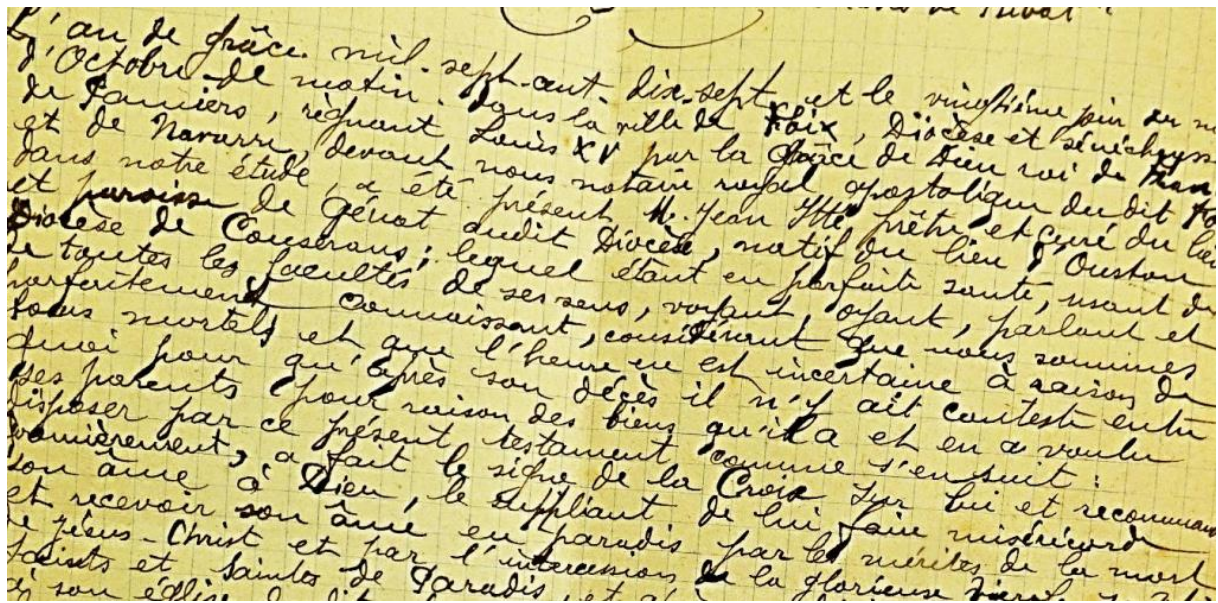 de Privat
L'an de grâce mil-sept-cent-dix-sept et le vingtième jour du
d'Octobre de matin. Dans la ville de Foix, Diocèse et sénéchaussé
de Pamiers, règnant Louis XV par la Grâce de Dieu roi de Fran
et de Navarre, devant nous notaire royal apostolique du dit
dans notre étude, a été présent M. Jean prêtre et curé du lieu
et paroisse de Génat audit Diocèse, natif du lieu d'Oustou
Diocèse de Couserans; lequel étant en parfaite santé, usant de
de toutes les facultés de ses sens, voyant, oyant, parlant et
parfaitement connaissant, considérant que nous sommes
tous mortels et que l'heure en est incertaine à raison de
quoi pour qu'après son décès il n'y ait conteste entre
ses parents pour raison des biens qu'il a et en a voulu
disposer par ce présent testament comme s'en suit :
premièrement, a fait le signe de la Croix sur lui et recomman
son âme à Dieu, le suppliant de lui faire miséricorde
et recevoir son âme en paradis par les mérites de la mort
de Jésus-Christ et par l'intercession de la glorieuse Vierge
saints et saintes de Paradis, et
son église